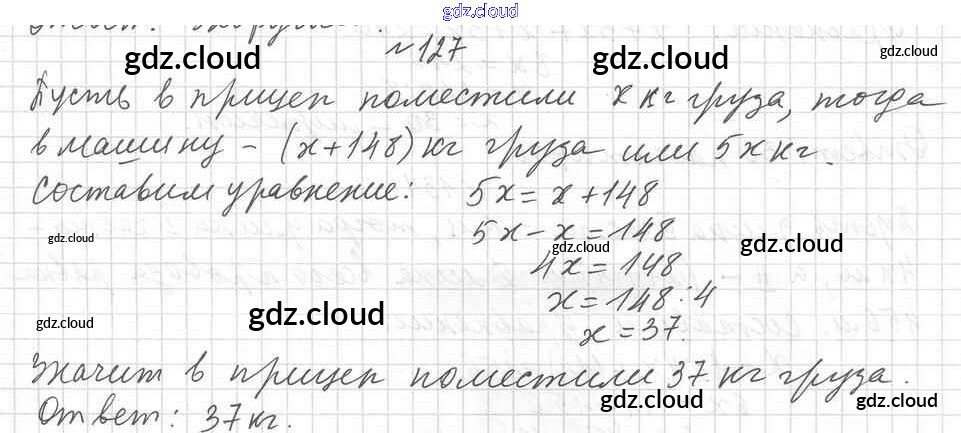 gdz.cloud
Ответ:
№127
gdz.cloud gdz.cloud gdz.cloud
Пусть в прицеп поместили х кг груза, тогда
в машину - (х+148) кг груза или 5х кг.
gdz.cloud gdz.cloud
Составим уравнение: 5х = х + 148
5х - х = 148
gdz.cloud gdz.cloud gdz.cloud
4х = 148
х = 148 : 4
gdz.cloud gdz.cloud gdz.cloud
х = 37.
Значит в прицеп поместили 37 кг груза.
gdz.cloud gdz.cloud
Ответ: 37 кг.